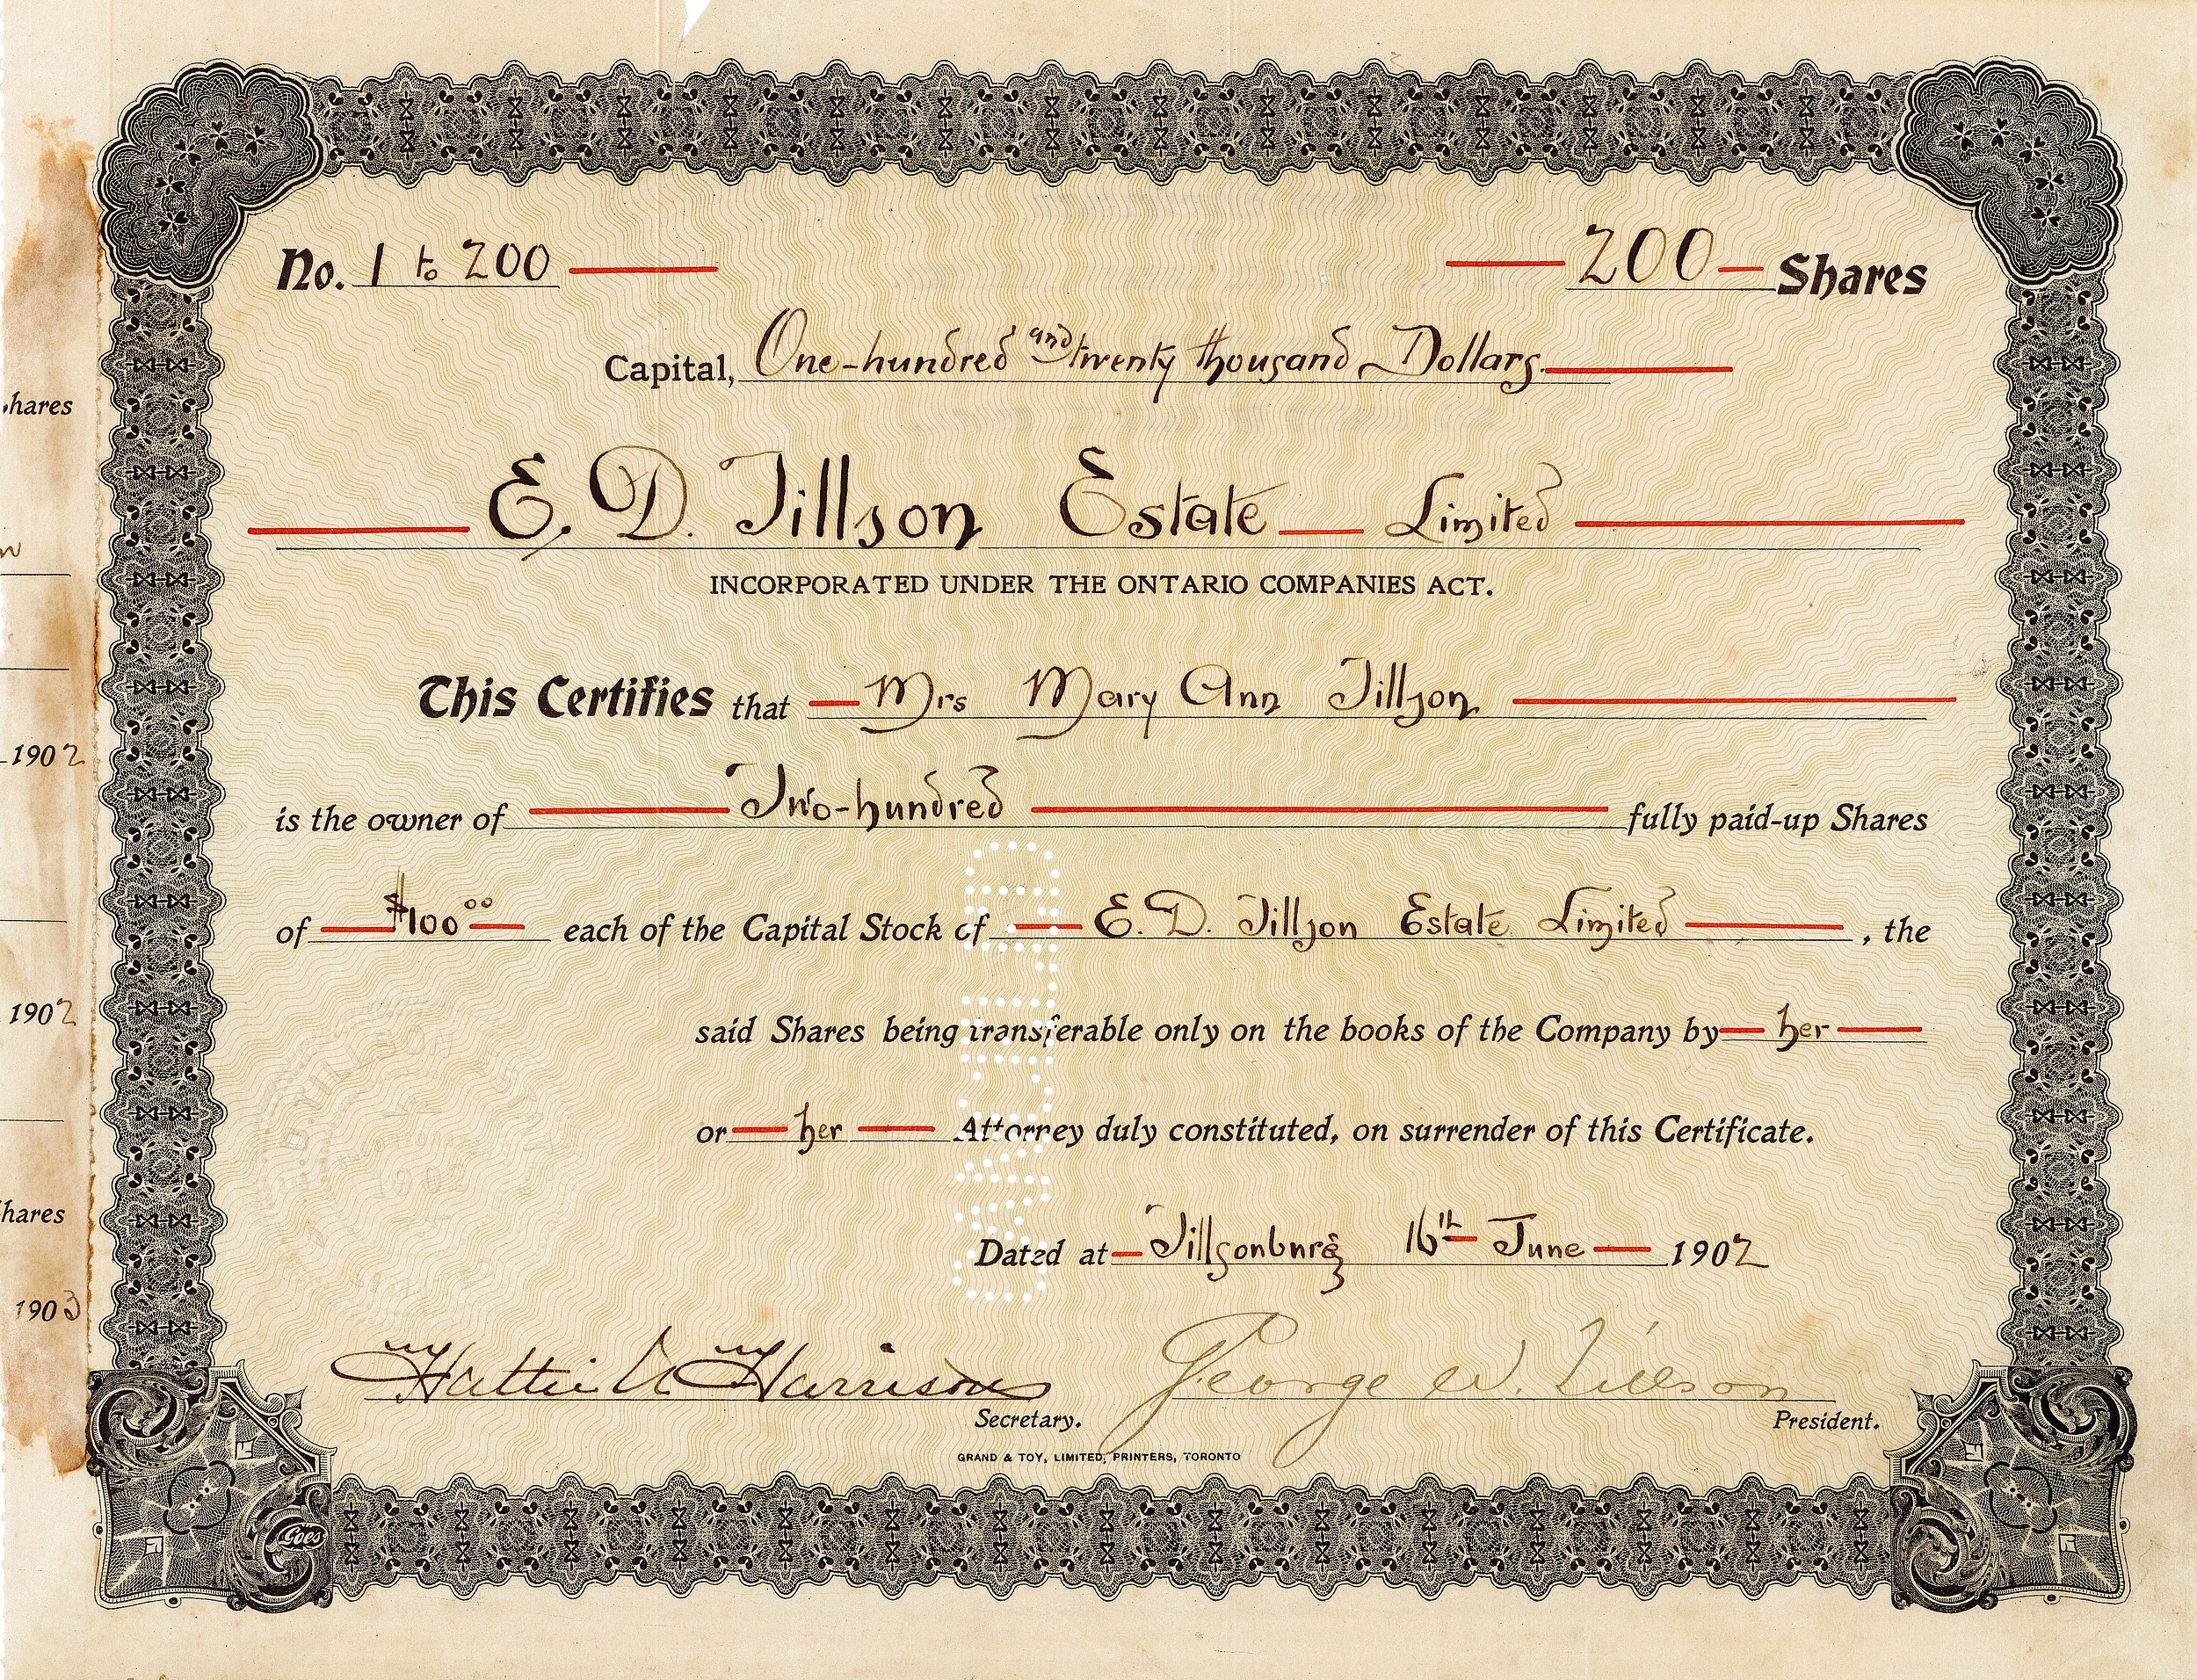 No. 1 to 200 200 Shares
Capital, One-hundred and twenty thousand Dollars.
E. D. Tillson Estate Limited
INCORPORATED UNDER THE ONTARIO COMPANIES ACT.
This Certifies that Mrs Mary Ann Tillson
is the owner of Two-hundred fully paid-up Shares
of $100.00 each of the Capital Stock of E. D. Tillson Estate Limited, the
said Shares being transferable only on the books of the Company by her
or her Attorney duly constituted, on surrender of this Certificate.
Dated at Tillsonburg 16th June 1902
Hattie A Harrison George W. Tillson
Secretary. President.
GRAND & TOY, LIMITED, PRINTERS, TORONTO
Goes
hares
1902
1902
hares
1903